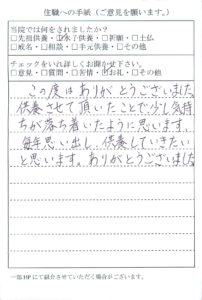 住職への手紙(ご意見を願います。)
当院では何をされましたか?
□先祖供養・☑水子供養・□祈願・□土仏
□戒名・□相談・□手元供養・□その他
チェックをいれ詳しくお聞かせ下さい。
□意見・□質問・□苦情・☑お礼・□その他
この度はありがとうございました。
供養させて頂いたことで少し気持
ちが落ち着いたように思います。
毎年思い出し、供養していきたい
と思います。ありがとうございました
一部HPにて紹介させていただく場合がございます。